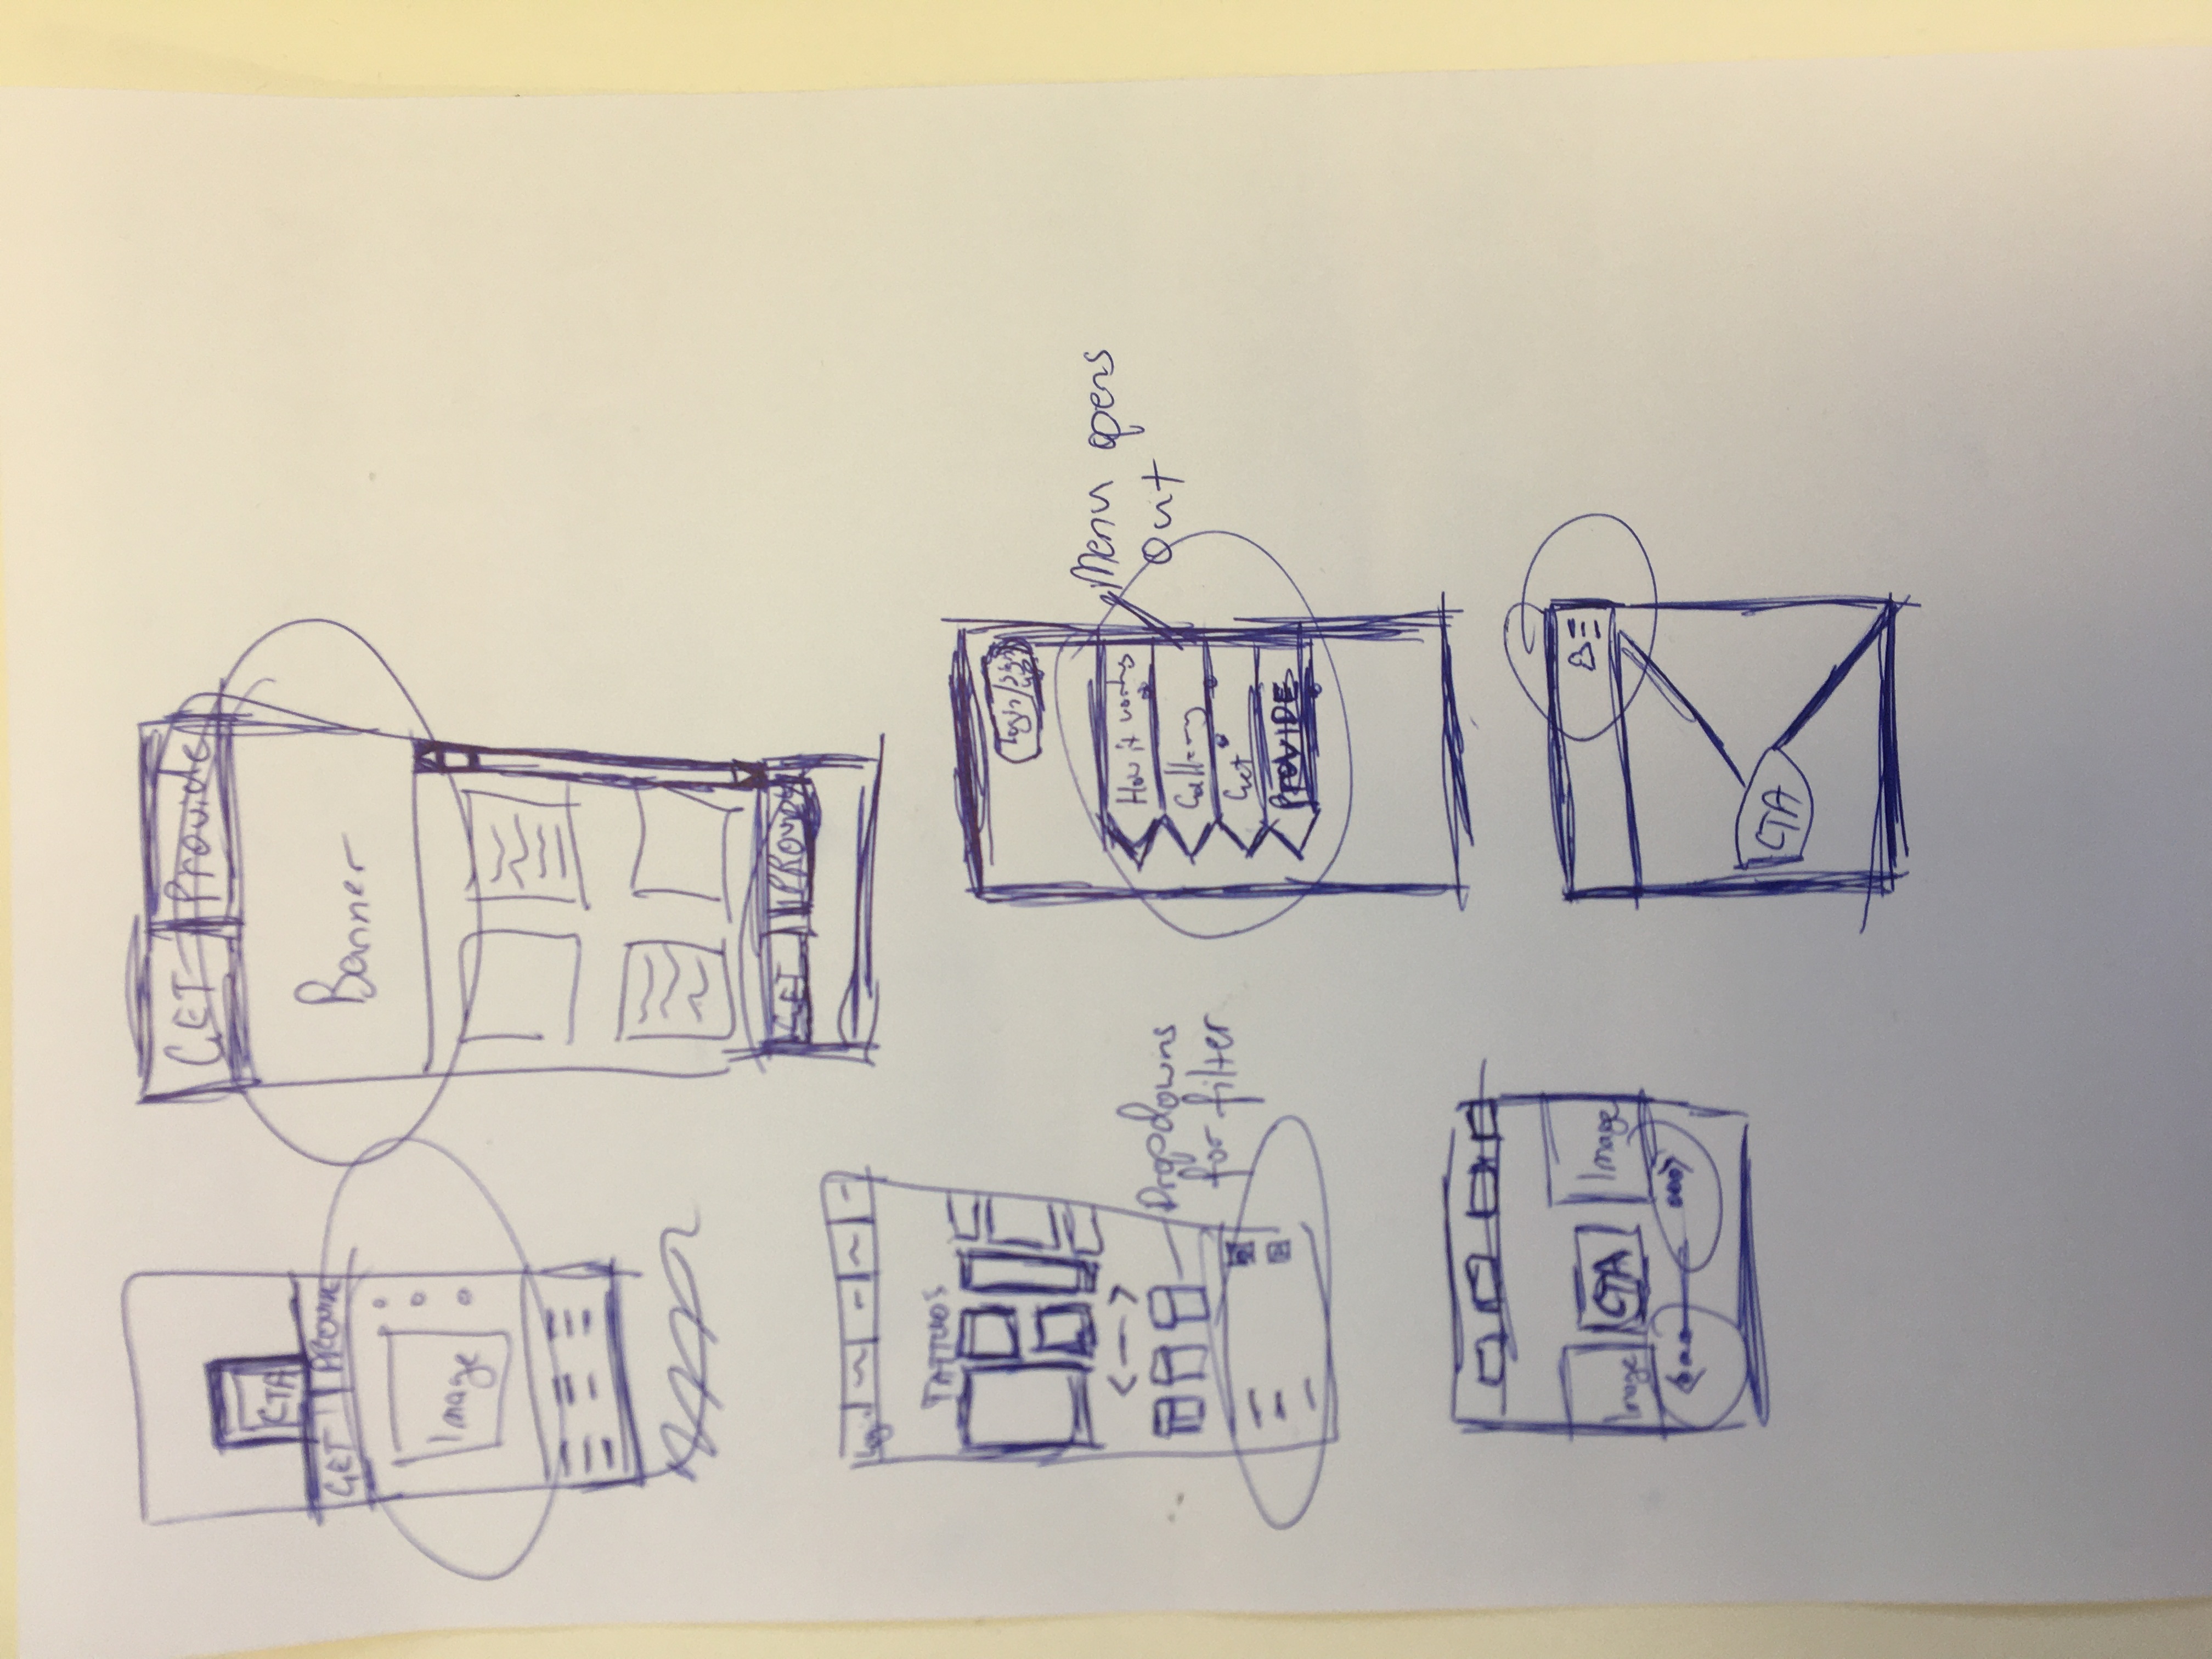 CTA
GET
PROVIDE
Image
GET
Provide
Banner
GET
PROVIDE
Login
TATTOOS
Dropdowns
for filter
Login/Sign
up
How it works
Gallery
Get
PROVIDE
Menu opens
Out
Image
CTA
Image
CTA